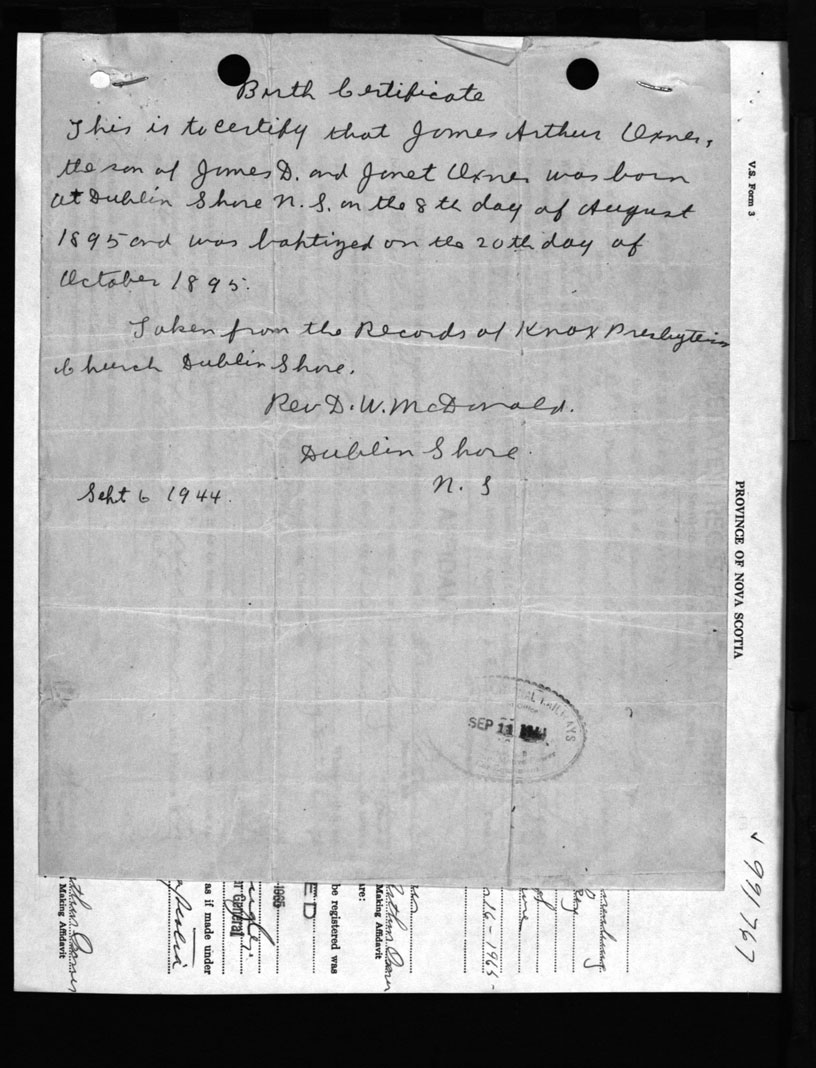 Birth Certificate
This is to certify that James Arthur Oxner,
the son of James D. and Janet Oxner was born
at Dublin Shore N. S. on the 8th day of August
1895 and was baptized on the 20th day of
October 1895.
Taken from the Records of Knox Presbyterian
Church Dublin Shore.
Rev D. W. McDonald.
Dublin Shore.
N. S
Sept 6 1944.
SEP 11
V.S. Form 3
PROVINCE OF NOVA SCOTIA
991767
1965
be registered was
are:
Making Affidavit
ED
1965
General
as if made under
Making Affidavit